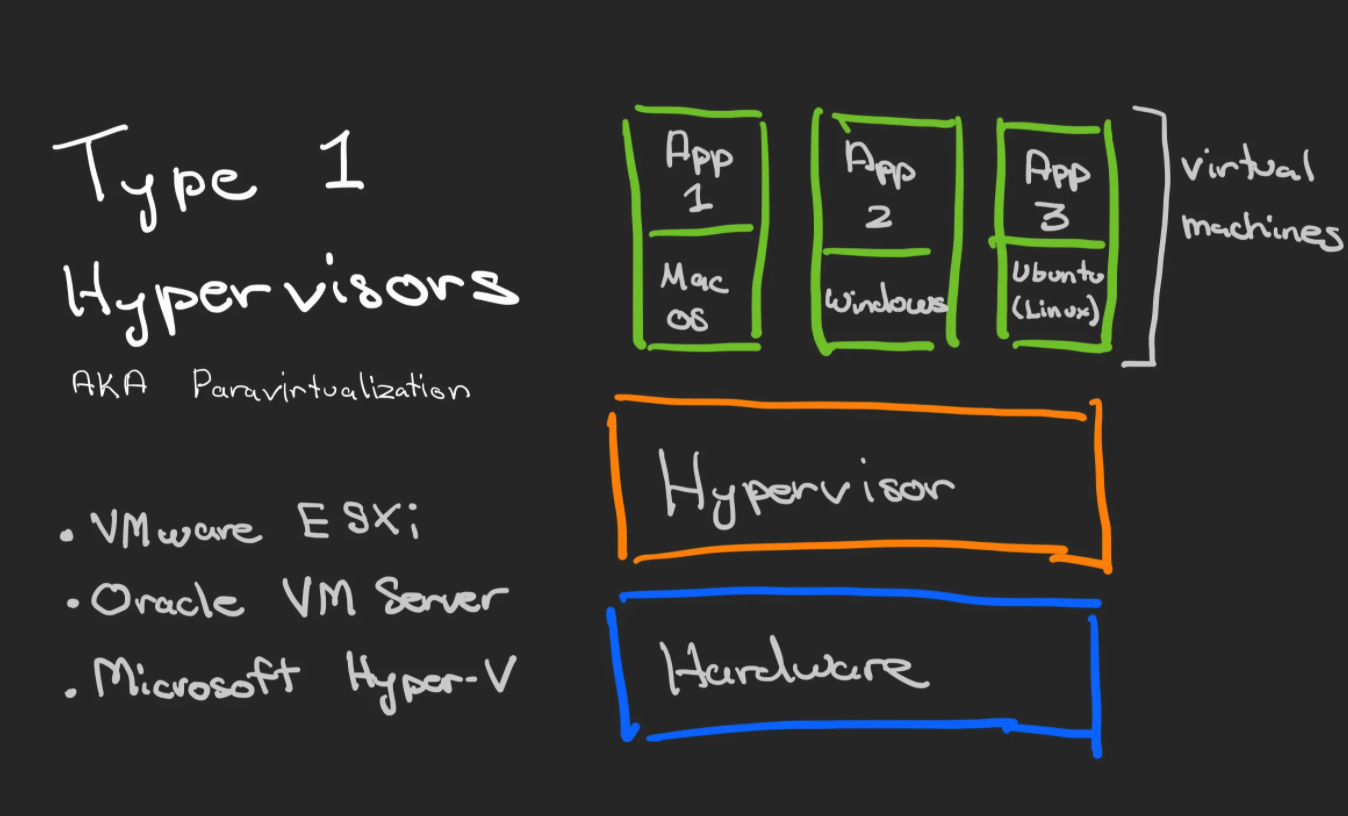 Type 1
Hypervisors
AKA Paravirtualization
• VMware ESXi
• Oracle VM Server
• Microsoft Hyper-V
App
1
Mac
OS
App
2
Windows
App
3
Ubuntu
(Linux)
virtual
machines
Hypervisor
Hardware